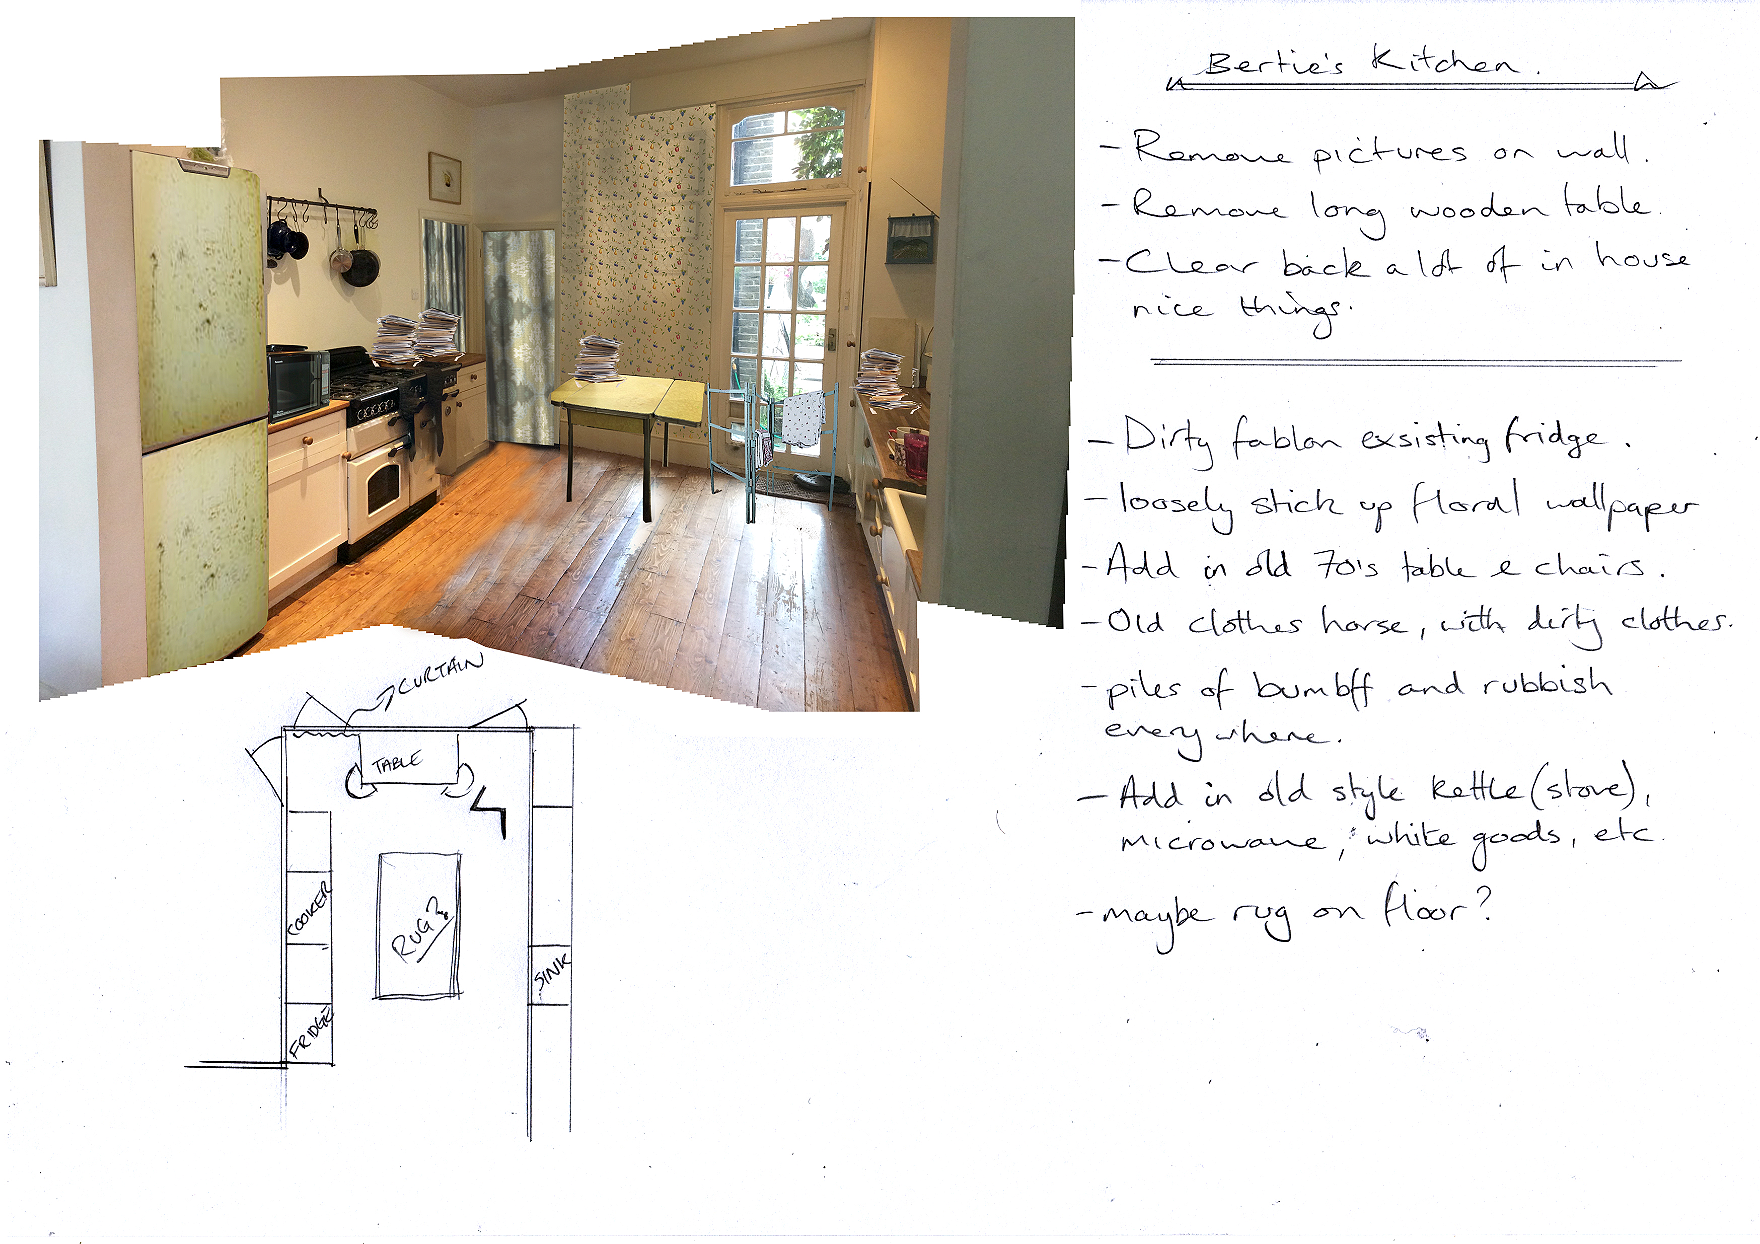 Bertie's Kitchen.
- Remove pictures on wall.
- Remove long wooden table.
- Clear back a lot of in house
nice things.
- Dirty fablon exsisting fridge.
- loosely stick up floral wallpaper
- Add in old 70's table & chairs.
- Old clothes horse, with dirty clothes.
- piles of bumbff and rubbish
every where.
- Add in old style kettle (stove),
microwave, white goods, etc.
- maybe rug on floor?
CURTAIN
TABLE
COOKER
RUG?
SINK
FRIDGE